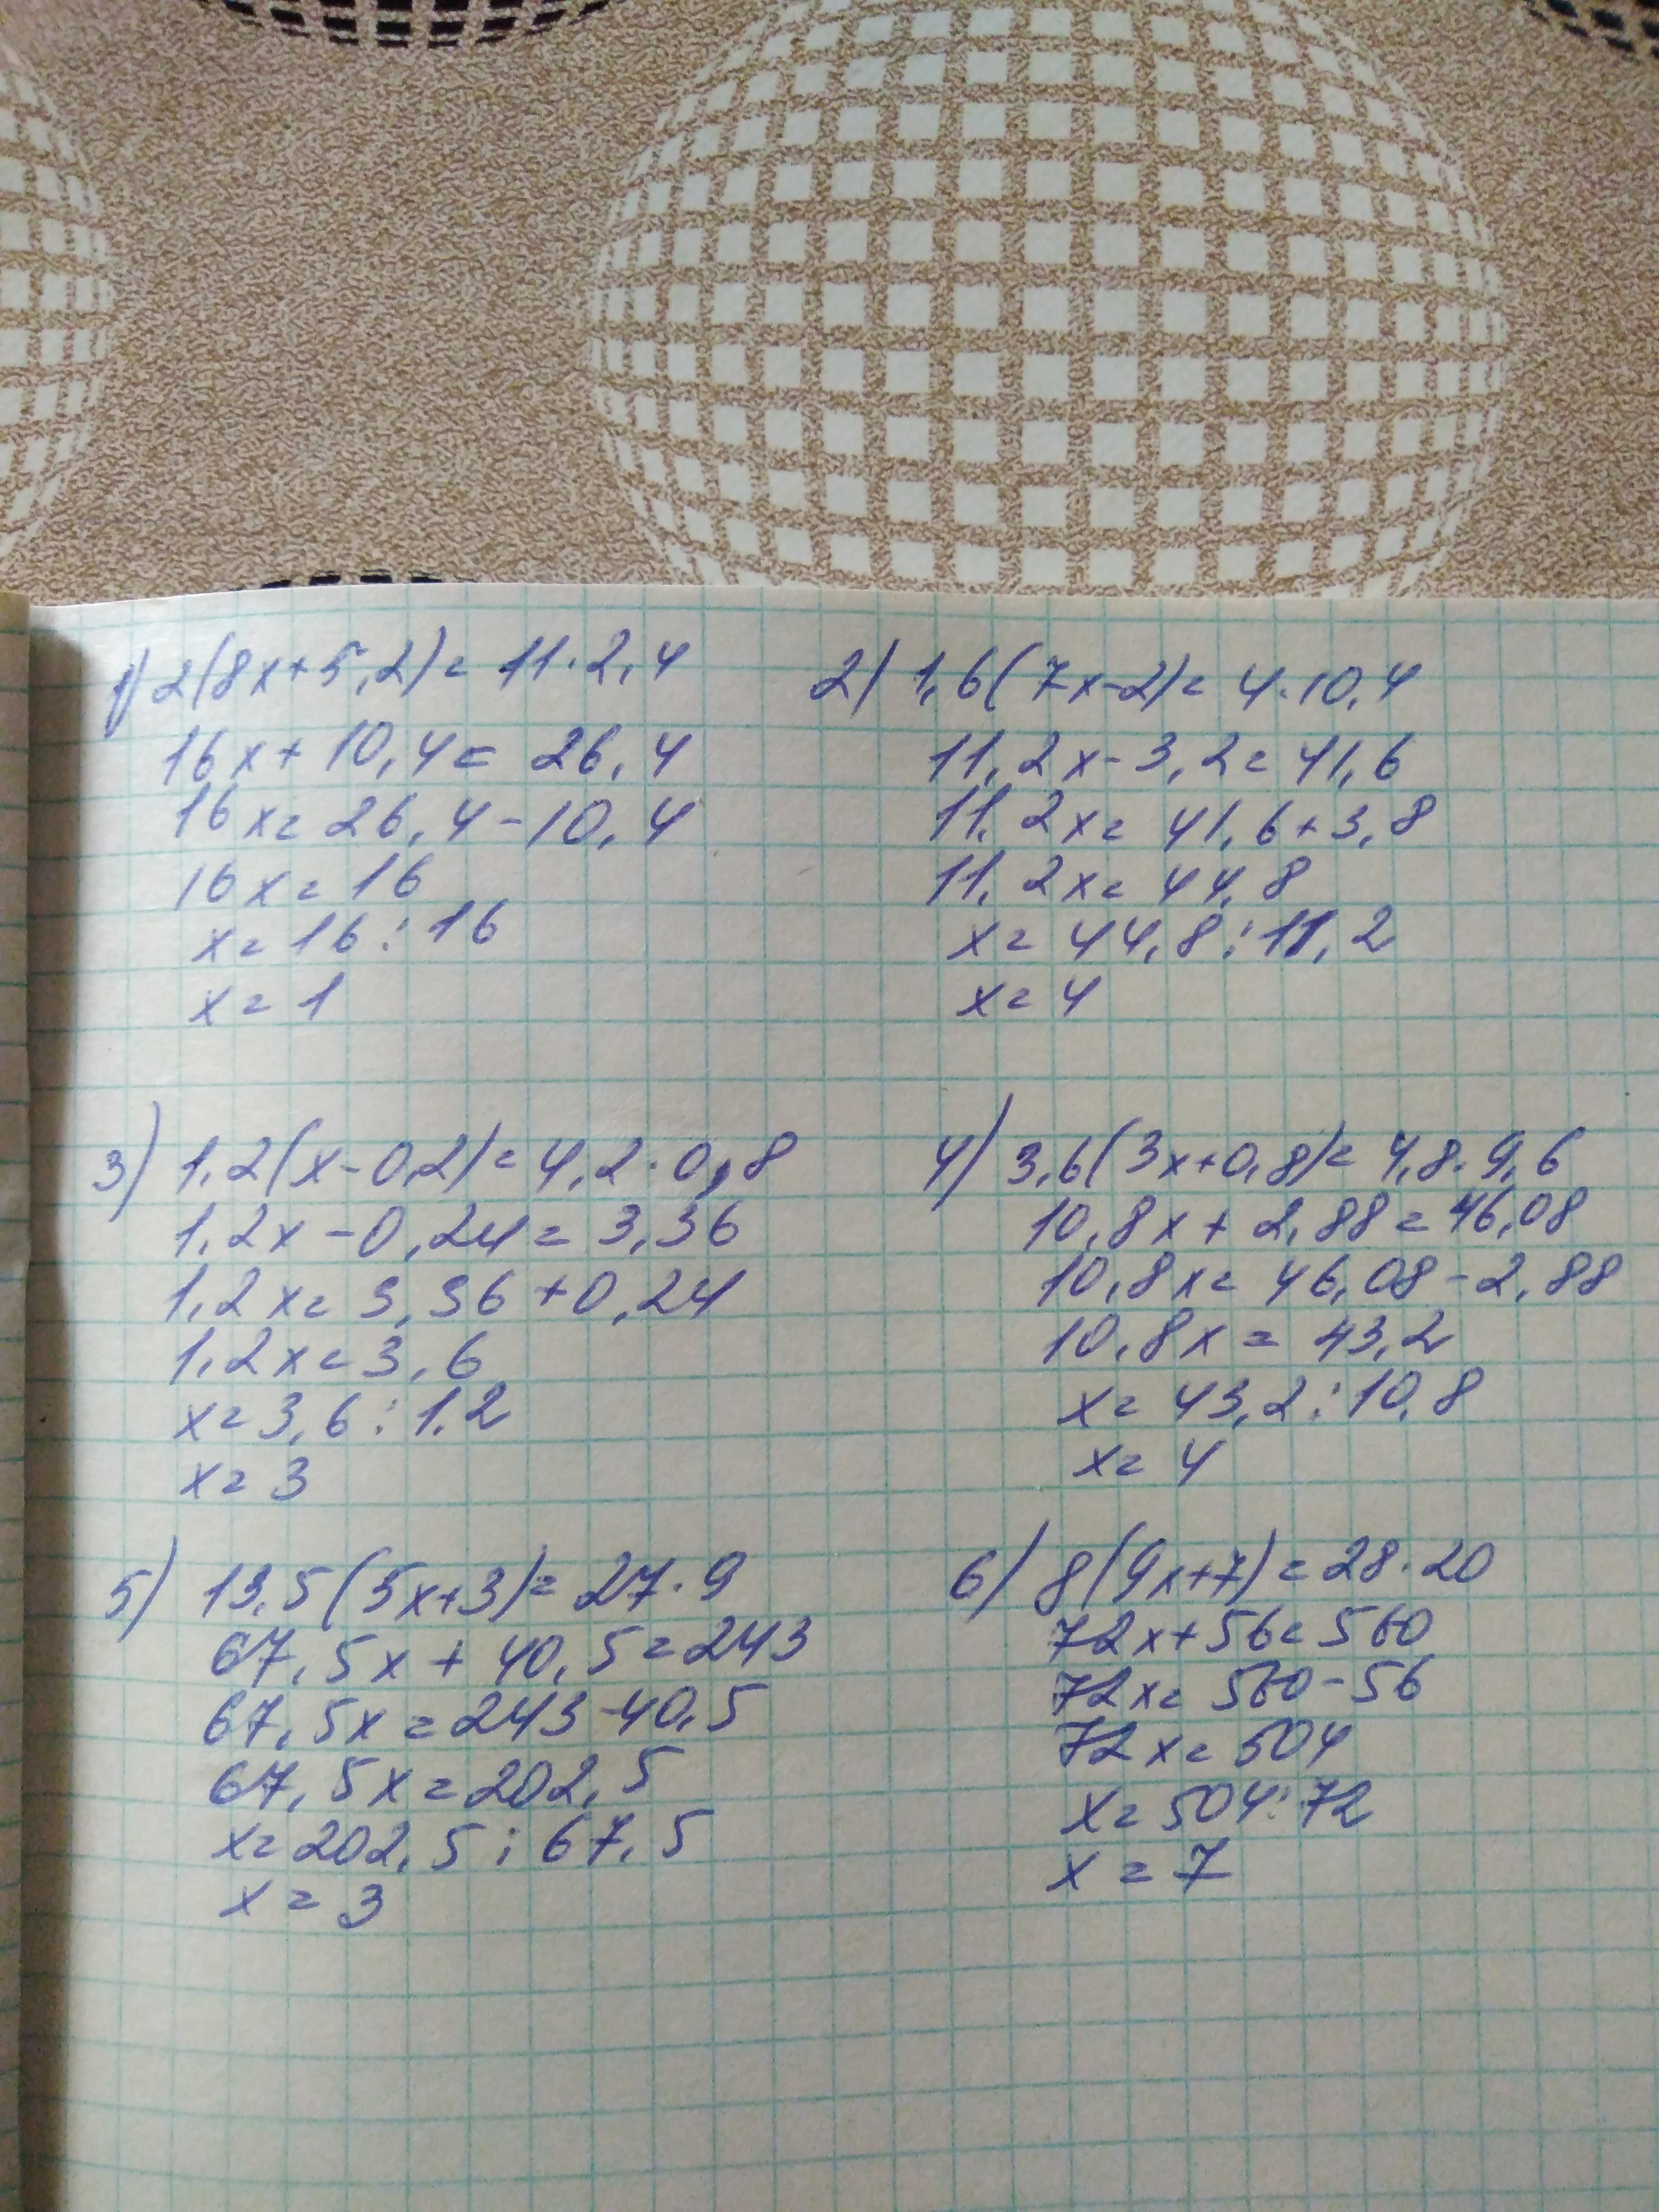 1) 2(8x+5,2)= 11·2,4
16x+10,4= 26,4
16x= 26,4-10,4
16x= 16
x= 16:16
x= 1
2) 1,6(7x-2)= 4·10,4
11,2x-3,2= 41,6
11,2x= 41,6+3,8
11,2x= 44,8
x= 44,8:11,2
x= 4
3) 1,2(x-0,2)= 4,2·0,8
1,2x-0,24= 3,36
1,2x= 3,36+0,24
1,2x= 3,6
x= 3,6:1,2
x= 3
4) 3,6(3x+0,8)= 4,8·9,6
10,8x+2,88= 46,08
10,8x= 46,08-2,88
10,8x= 43,2
x= 43,2:10,8
x= 4
5) 13,5(5x+3)= 27·9
67,5x+40,5= 243
67,5x= 243-40,5
67,5x= 202,5
x= 202,5:67,5
x= 3
6) 8(9x+7)= 28·20
72x+56= 560
72x= 560-56
72x= 504
x= 504:72
x= 7